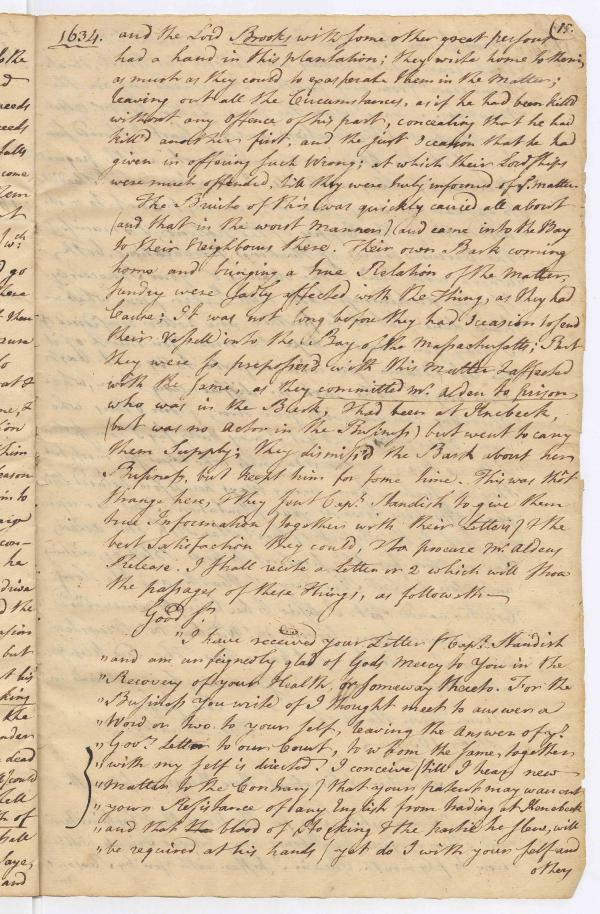 (15.
1634. and the Lord Brooks with some other great persons
had a hand in this plantation; they write home to them,
as much as they could to exasperate them in the matter;
leaving out all the Circumstances, as if he had been kill'd
without any offence of his part, concealing that he had
kill'd another first, and the just Occasion that he had
given in offering such Wrong; at which their Lordships
were much offended, till they were truly informed of ye. matter.
The Bruite of this was quickly caried all about
(and that in the worst Manner) and came into the Bay
to their Neighbours there. Their own Bark coming
home and bringing a true Relation of the matter,
sundry were sadly affected with the Thing, as they had
Cause; It was not long before they had Occasion to send
their Vessell into the Bay of the Massachusetts; But
they were so prepossess'd with this Matter & affected
with the same, as they committed mr. alden to Prison
who was in the Bark, & had been at Kenebeck,
(but was no actor in the Business) but went to carry
them Supply; They dismiss'd the Bark about her
Business, but keept him for some time. This was thôt
strange here, & they sent Capt. Standish to give them
true Information (together with their Letters) & the
best Satisfaction they could, & to procure mr. Aldens
Release. I shall recite a Letter or 2 which will show
the passages of these Things, as followeth
Good Sr.
"I have received your Letter Capt. Standish
"and am unfeignedly glad of Gods mercy to You in the
"Recovery of your Health, or someway thereto. For the
"Business You write of I thought meet to answer a
"Word or two to your self, leaving the Answer of yr.
"Govrs. Letter to our Court, to whom the same, together
"with my self is directed. I conceive (till I hear new
"Matter to the Contrary) that your patent may warrant
"your Resistance of any English from trading at Kenebeck
"and that blood of Hocking & the partie he slew, will
"be required at his hands (yet do I with your self and
others